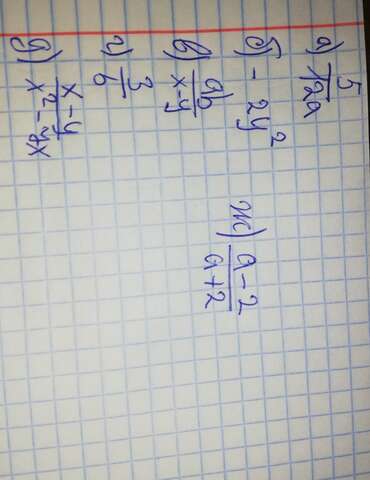 а) 5/12a
б) - 2y²
в) ab/x-y
г) 3/b
д) x-y/x²-yx
ж) a-2/a+2